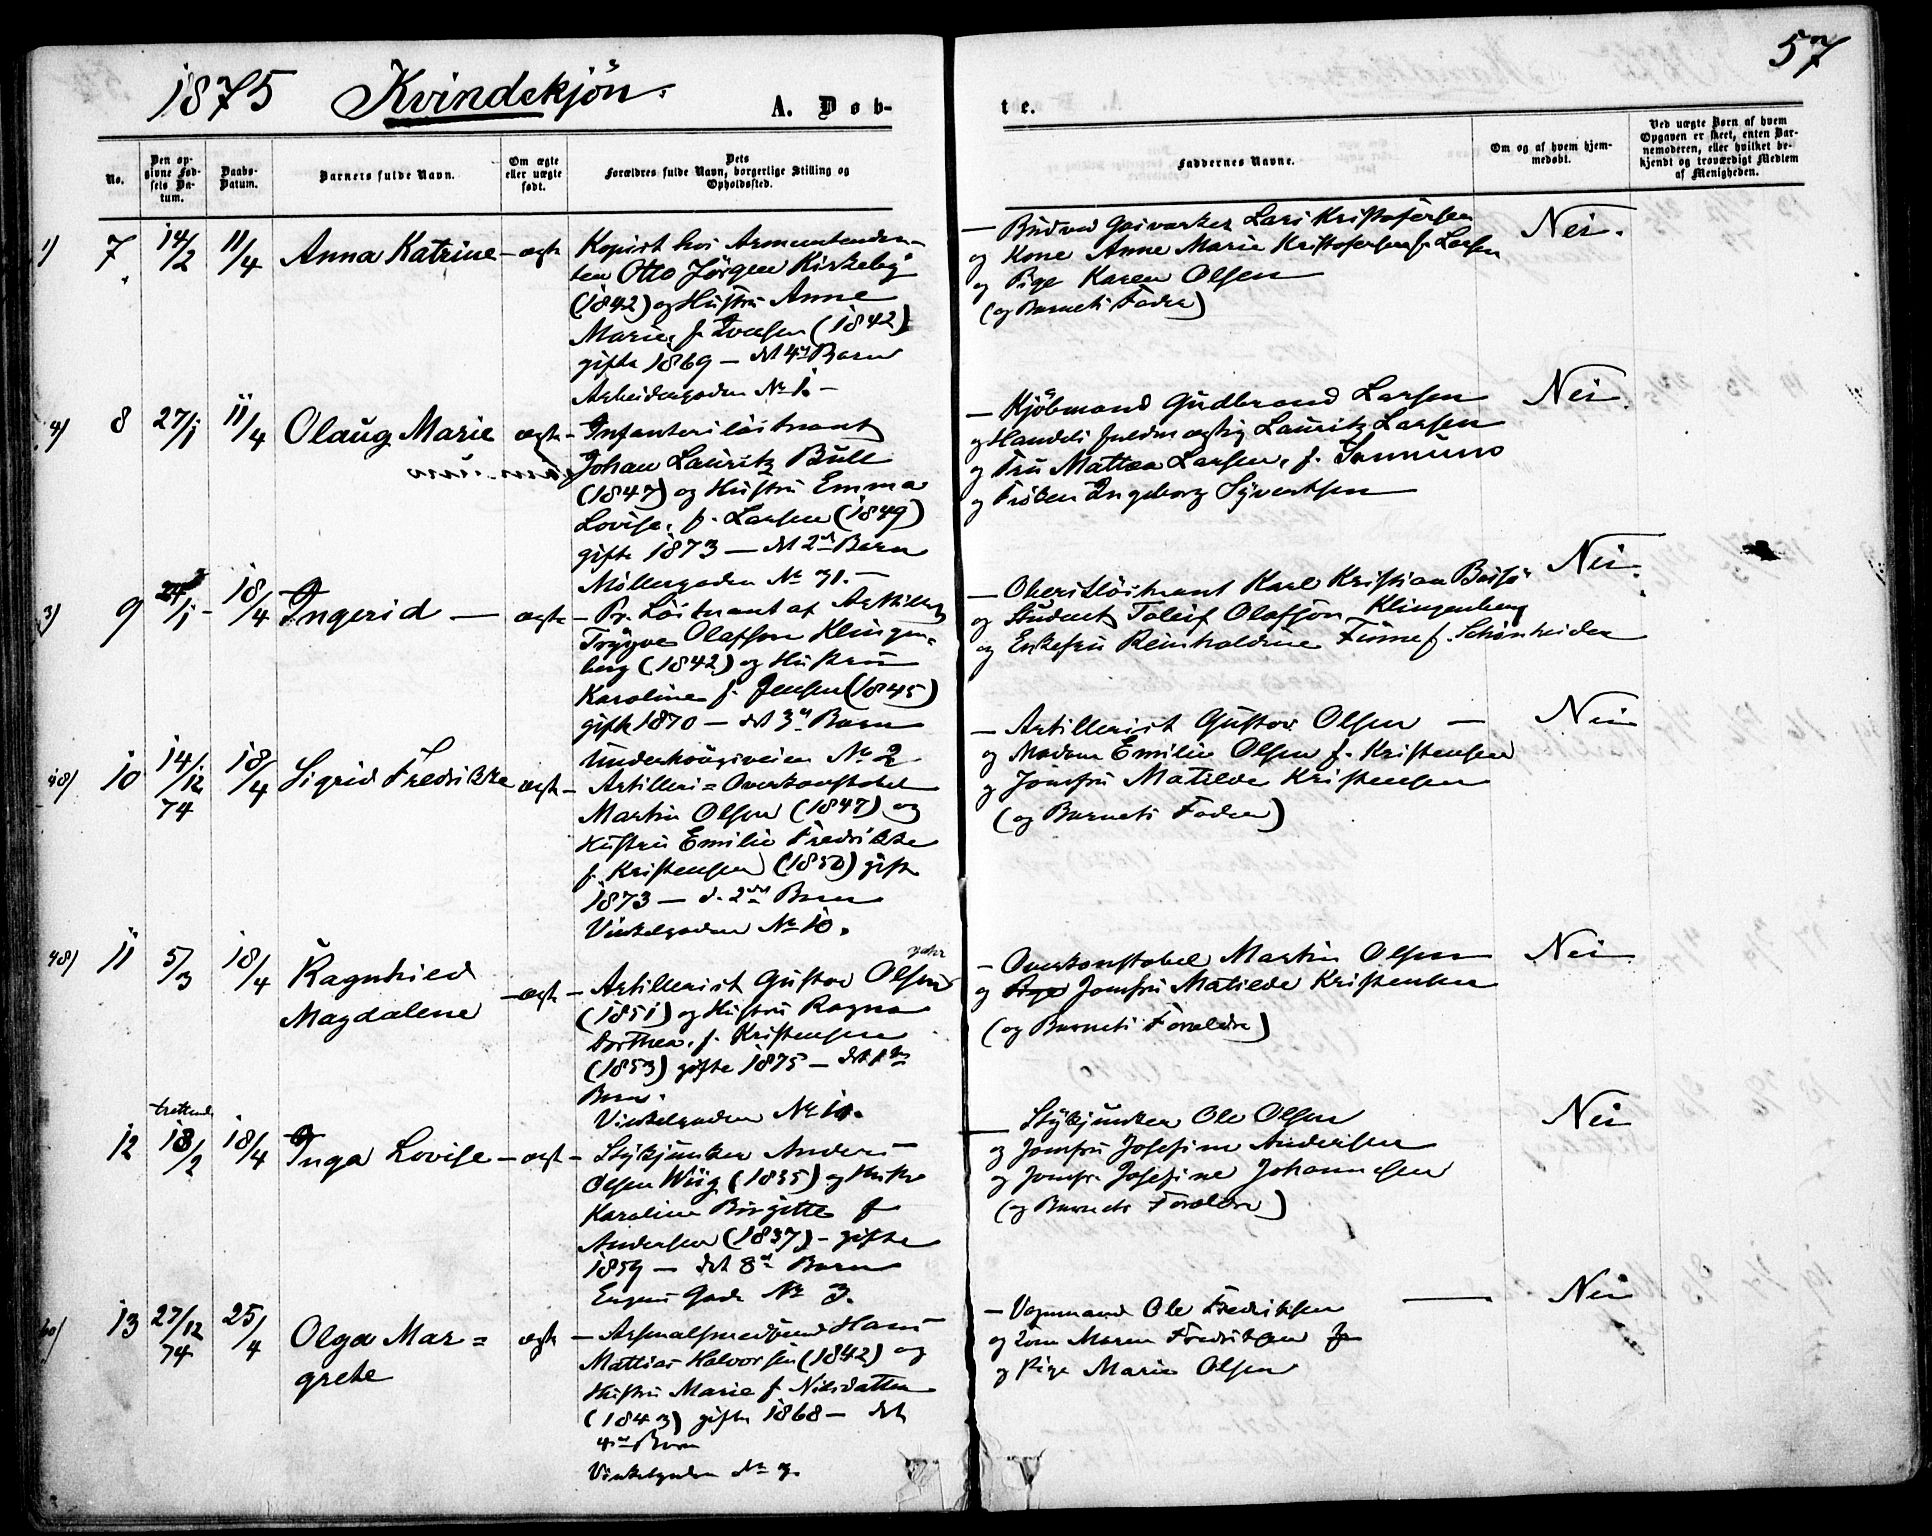 57
1875 Kvindekjön.
A. Døb-
te.
No.
Den op-
givne Fød-
sels Da-
tum.
Daabs-
Datum.
Barnets fulde Navn.
Om ægte
eller uægte
født.
Dets
Forældres fulde Navn, borgerlige Stilling og
Opholdssted.
Faddernes Navne.
Om og af hvem hjem-
medøbt.
Ved uægte Børn af hvem
Opgaven er skeet, enten Bar-
nemoderen, eller hvilket be-
kjendt og troværdigt Medlem
af Menigheden.
1) 7 14/2 11/4 Anna Katrine – ægte
Kopist hos Armeintendan-
ten Otto Jörgen Kirkeby
(1842) og Hustru Anne
Marie, f. Iversen (1842)
gifte 1869 – det 4de Barn
Arbeidergaden No 1. –
– Budved Lars Kristofersen
og Kone Anne Marie Kristofersen f. Larsen
og Pige Karen Olsen
(og Barnets Fader)
Nei.
4) 8 27/1 11/4 Olaug Marie ægte
– Infanteriløitnant
Johan Lauritz Bull
(1847) og Hustru Emma
Lovise, f. Larsen (1849)
gifte 1873 – det 2det Barn
Möllergaden No 31. –
– Kjöbmand Gudbrand Larsen
og Handels fuldmægtig Lauritz Larsen
og Fru Mattea Larsen, f.
og Fröken Ingeborg Syvertsen
Nei.
3) 9 /1 – 18/4 Ingerid – ægte
– Pr. Löitnant af Artilleriet
Tryggve Olafson Klingen-
berg (1842) og Hustru
Karoline f. Jensen (1845)
gifte 1870 – det 3de Barn
Underhaugsveien No 2
– Oberstlöitnant Karl Kristian
og Student Toleif Olafsön Klingenberg
og Enkefru Reinholdine Finne f. Schönheider
Nei.
48) 10 14/12 74 18/4 Sigrid Fredrikke ægte
– Artilleri = Overkonstabel
Martin Olsen (1847) og
Hustru Emilie Fredrikke
f. Kristensen (1850) gifte
1873 – d. 2det Barn
Vinkelgaden No 10.
– Artillerist Gustav Olsen –
og Madam Emilie Olsen f. Kristensen
og Jomfru Matilde Kristensen
(og Barnets Fader)
Nei
48) 11 5/3 18/4 Ragnhild
Magdalene – ægte
– Artillerist Gustav Olsen
(1851) og Hustru Ragna
Dorthea, f. Kristensen
(1853) gifte 1875 – det 1ste
Barn.
Vinkelgaden No 10.
– Overkonstabel Martin Olsen
og Pige Jomfru Matilde Kristensen
(og Barnets Forældre)
Nei
trettende
12 13/2 18/4 Inga Lovise – ægt
– Stykjunker Anders
Olsen Wiig (1835) og Hustru
Karoline Birgitte f
Andersen (1837) – gifte
1859 – det 8de Barn
Gade No 3.
– Stykjunker Ole Olsen
og Jomfru Josefine Andersen
og Jomfr. Josefine Johannesen
(og Barnets Forældre)
Nei
13 27/12 74 25/4 Olga Mar =
grete ægt
– Arsenalsmedsvend Hans
Mattias Halvorsen (1842) og
Hustru Marie f Nilsdatter
(1843) gifte 1868 – det
4de Barn
Vinkelgaden No 7.
– Vognmand Ole Fredriksen
og Kone Maren Fredriksen
og Pige Marie Olsen
Nei